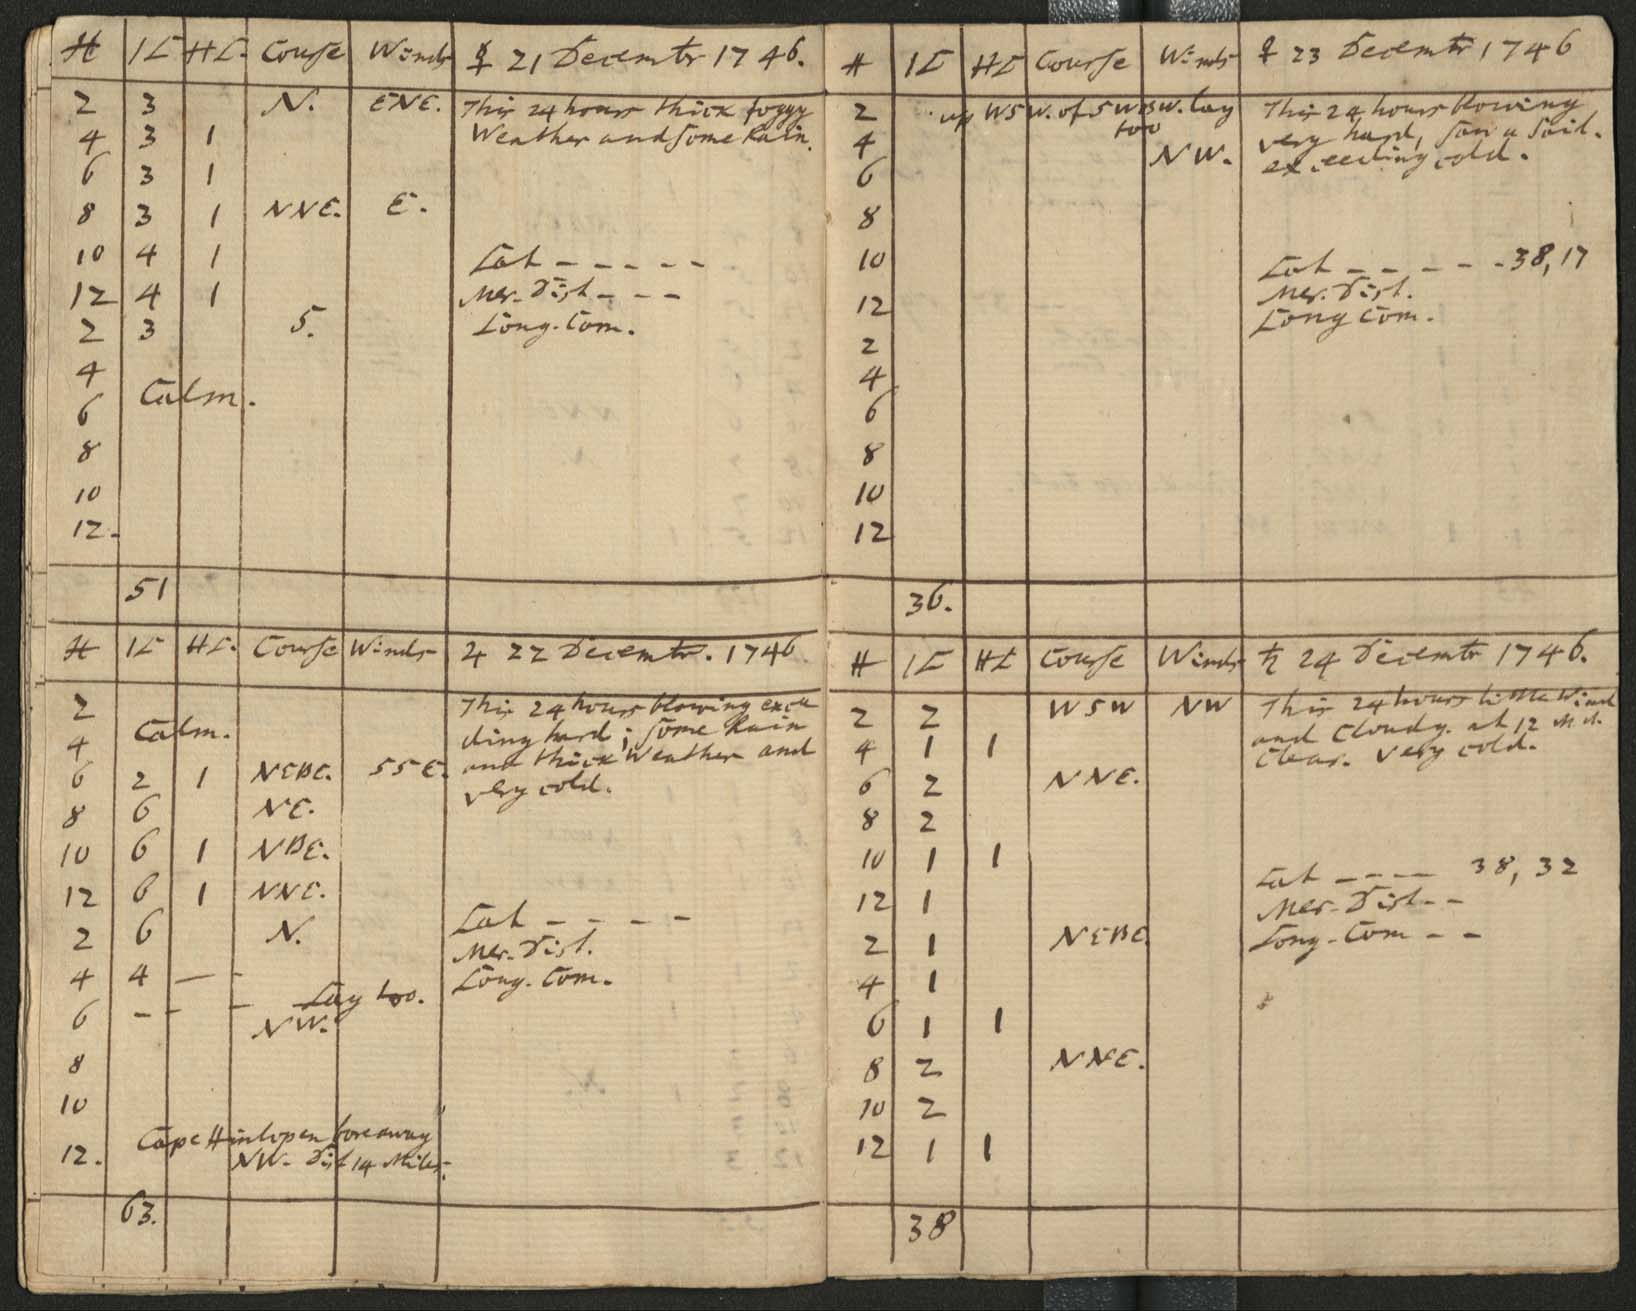 H 1K HK. Course Winds ☿ 21 Decembr 1746.
2 3 N. ENE. This 24 hours thick foggy
4 3 1 Weather and some Rain.
6 3 1
8 3 1 NNE. E.
10 4 1 Lat - - - - -
12 4 1 Mer. Dist - - -
2 3 S. Long. Com.
4
Calm.
6
8
10
12.
51
H 1K HK. Course Winds ♃ 22 Decembr. 1746
2 This 24 hours blowing excee
Calm. ding hard; some Rain
4 and thick Weather and
6 2 1 NEBE. SSE. very cold.
8 6 NE.
10 6 1 NBE.
12 6 1 NNE.
2 6 N. Lat - - - -
Mer. Dist.
4 4 — - Long. Com.
6 - - - Lay too.
NW.
8
10
Cape Hinlopen bore away
12. NW. Dist 14 Miles.
63.
H 1K HK Course Winds ♀ 23 Decembr 1746
2 up WSW. of SWBW. lay This 24 hours blowing
4 too very hard, saw a Sail.
6 NW. exceeding cold.
8
10 Lat - - - - - 38,17
12 Mer. Dist.
Long Com.
2
4
6
8
10
12
36.
H 1K HK Course Winds ♄ 24 Decembr 1746.
2 2 WSW NW This 24 hours little Wind
4 1 1 and Cloudy. at 12 Md.
6 2 NNE. Clear. Very cold.
8 2
10 1 1 Lat - - - - 38, 32
12 1 Mer. Dist - -
2 1 NEBE. Long. Com - -
4 1
6 1 1
8 2 NNE.
10 2
12 1 1
38